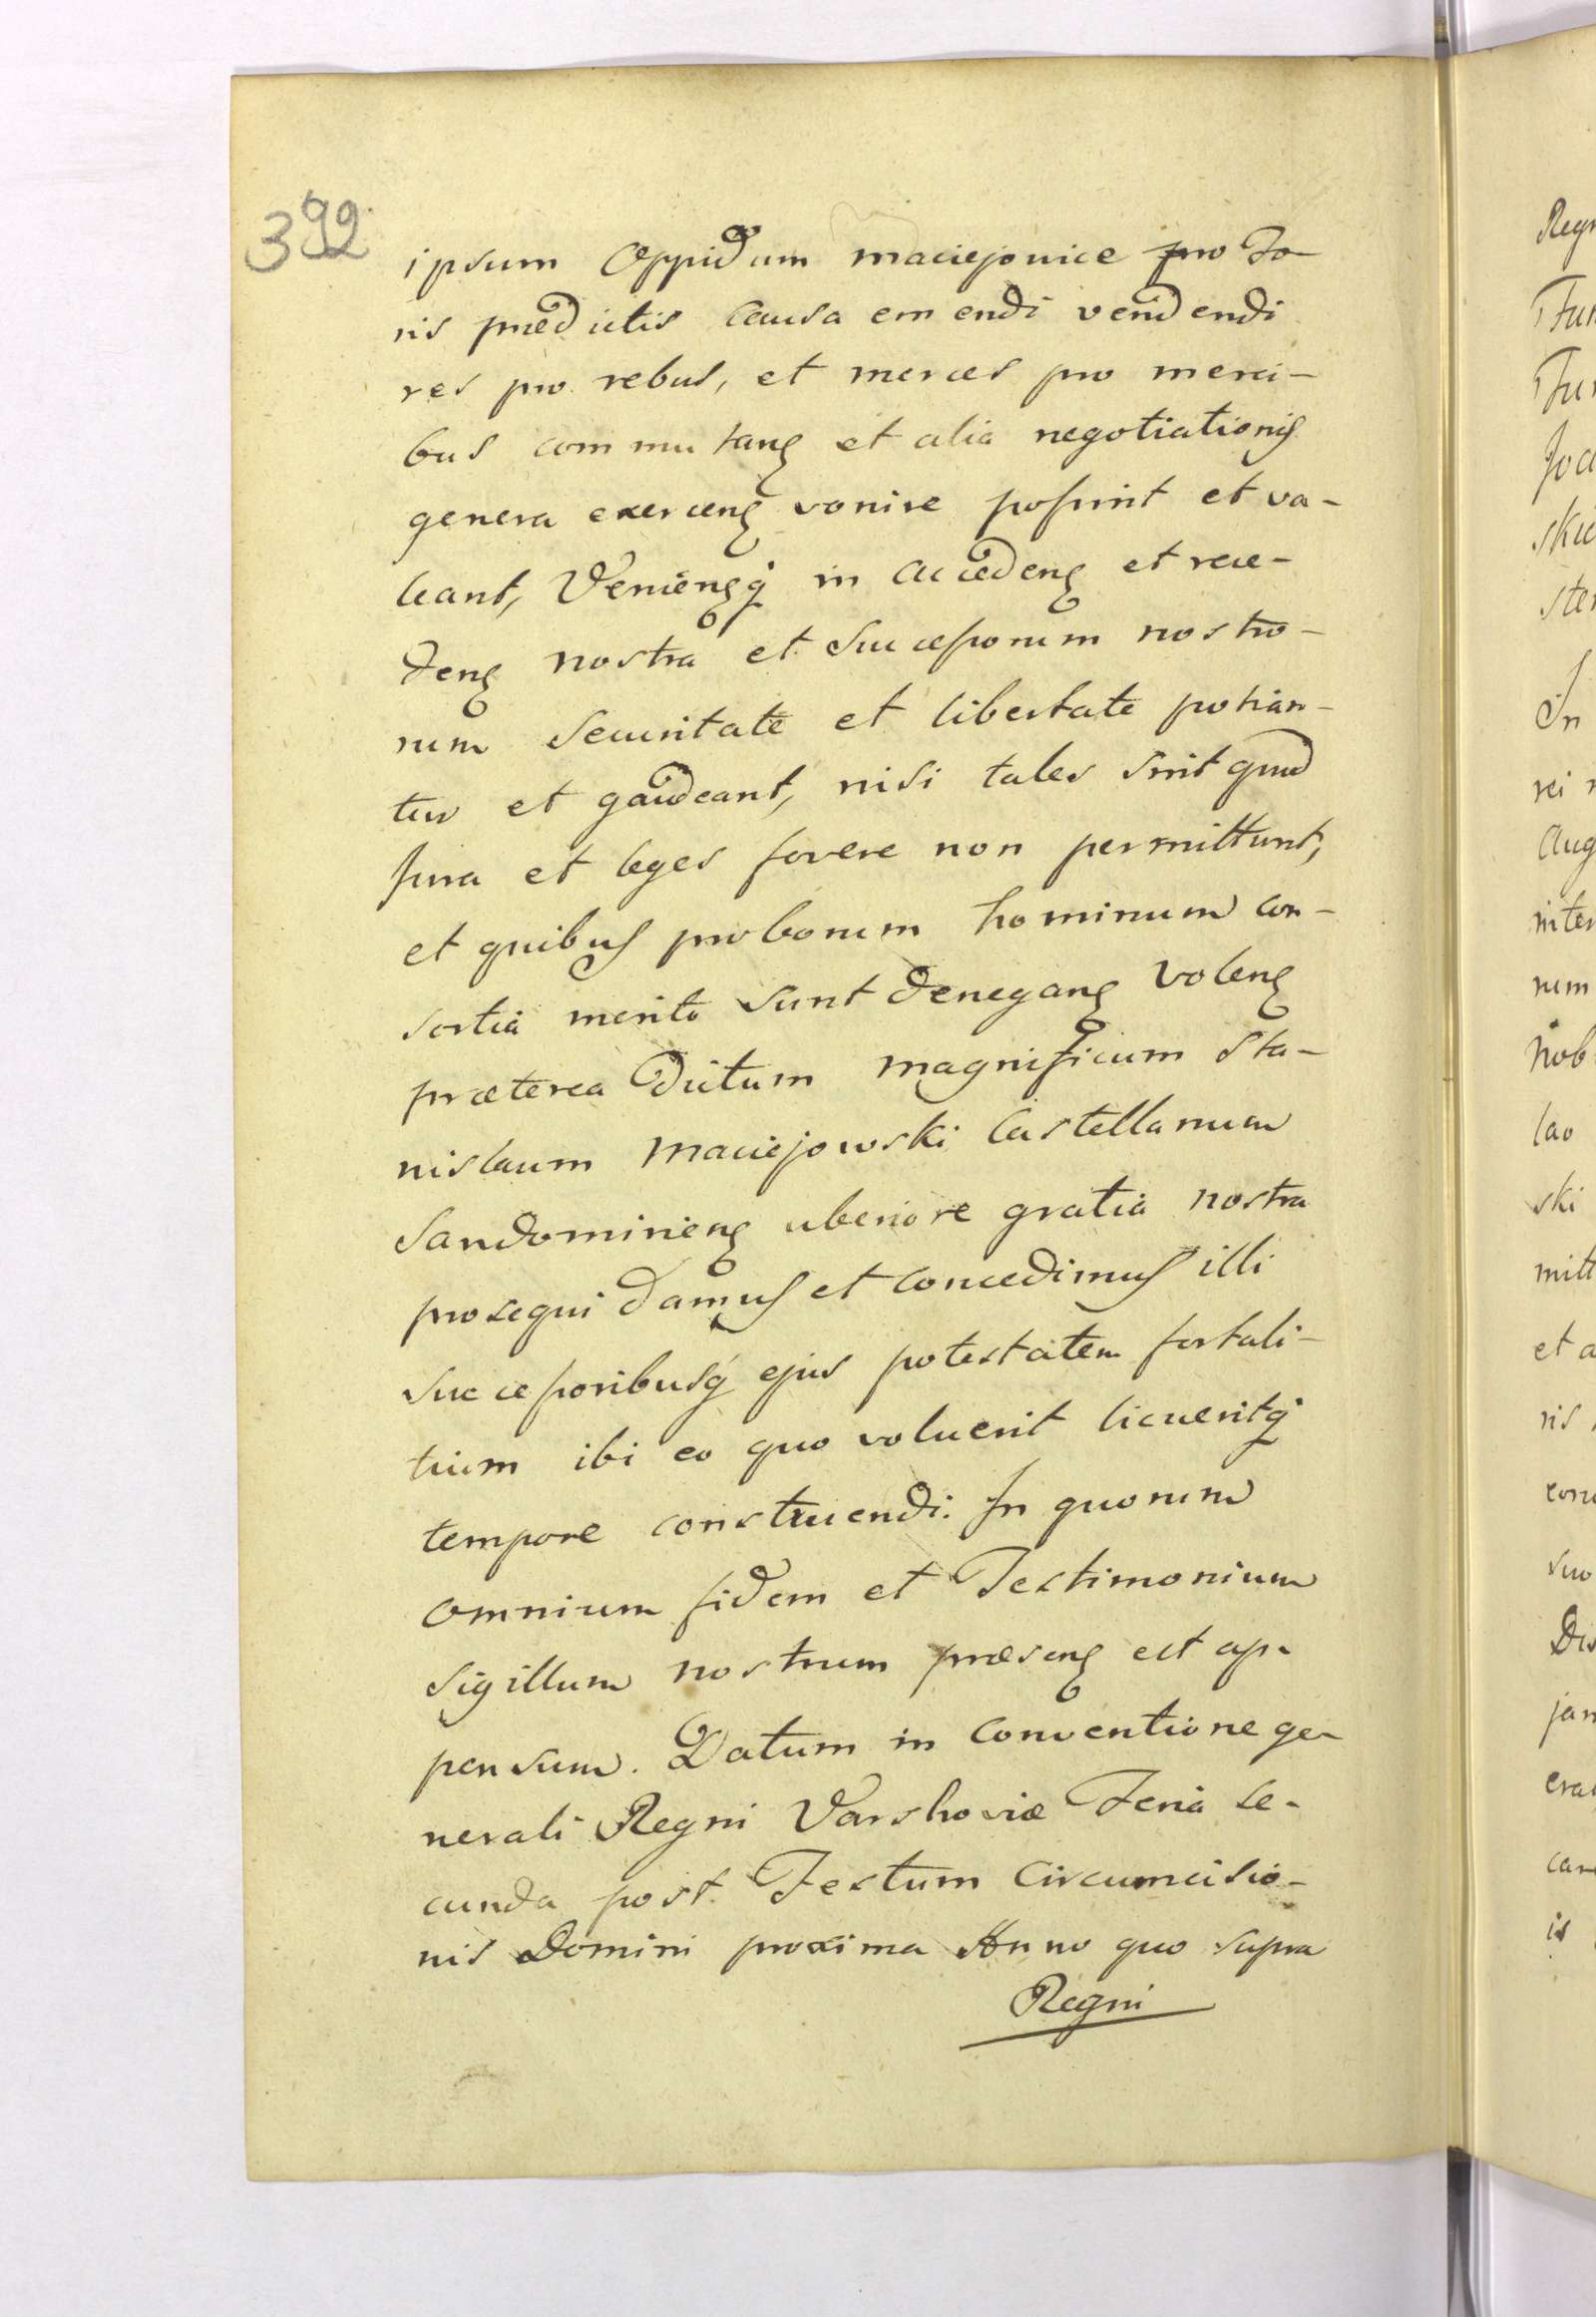 392
ipsum Oppidum maciejovice pro Fo-
ris prædictis causa emendi vendendi
res pro rebus, et merces pro merci-
bus commutanę et alia negotiationis
genera exercenę venire poßint et va-
leant, Venienęq́ in accedenę et rece-
denę nostra et Succeßorum nostro-
rum Securitate et libertate potian-
tur et gaudeant, nisi tales sint quod
Jura et leges fovere non permittunt,
et quibus proborum hominum con-
sortia merito sunt deneganę volenę
præterea Dictum magnificum Sta-
nislaum Maciejowski Castellanum
Sandomirienę uberiore gratia nostra
prosequi damus et concedimus illi
Succeßoribusq́ ejus potestatem fortali-
tium ibi eo quo voluerit licueritq́
tempore construendi. In quorum
omnium fidem et Testimonium
Sigillum nostrum præsenę est ap-
pensum. Datum in Conventione ge-
nerali Regni Varshoviæ Feria se-
cunda post Festum Circumcisio-
nis Domini proxima Anno quo supra
Regni